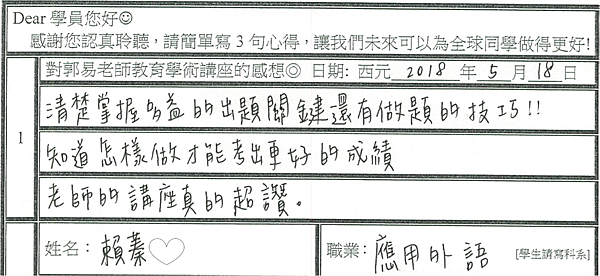 Dear 學員您好☺
感謝您認真聆聽，請簡單寫 3 句心得，讓我們未來可以為全球同學做得更好!
對郭易老師教育學術講座的感想◎ 日期: 西元 2018 年 5 月 18 日
1
清楚掌握多益的出題關鍵還有做題的技巧!!
知道怎樣做才能考出更好的成績
老師的講座真的超讚。
姓名： 賴蓁♡ 職業： 應用外語 [學生請寫科系]